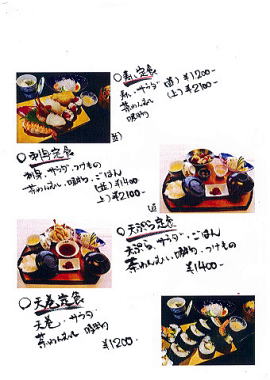 ○寿し定食
寿し、サラダ (並)¥1200-
茶わんむし (上)¥2100-
吸物
○刺身定食
刺身、サラダ、つけもの
茶わんむし、吸物、ごはん
(並)¥1400
(上)¥2100-
○天ぷら定食
天ぷら、サラダ、ごはん
茶わんむし、吸物、つけもの
¥1400-
○天巻定食
天巻、サラダ
茶わんむし 吸物
¥1200-